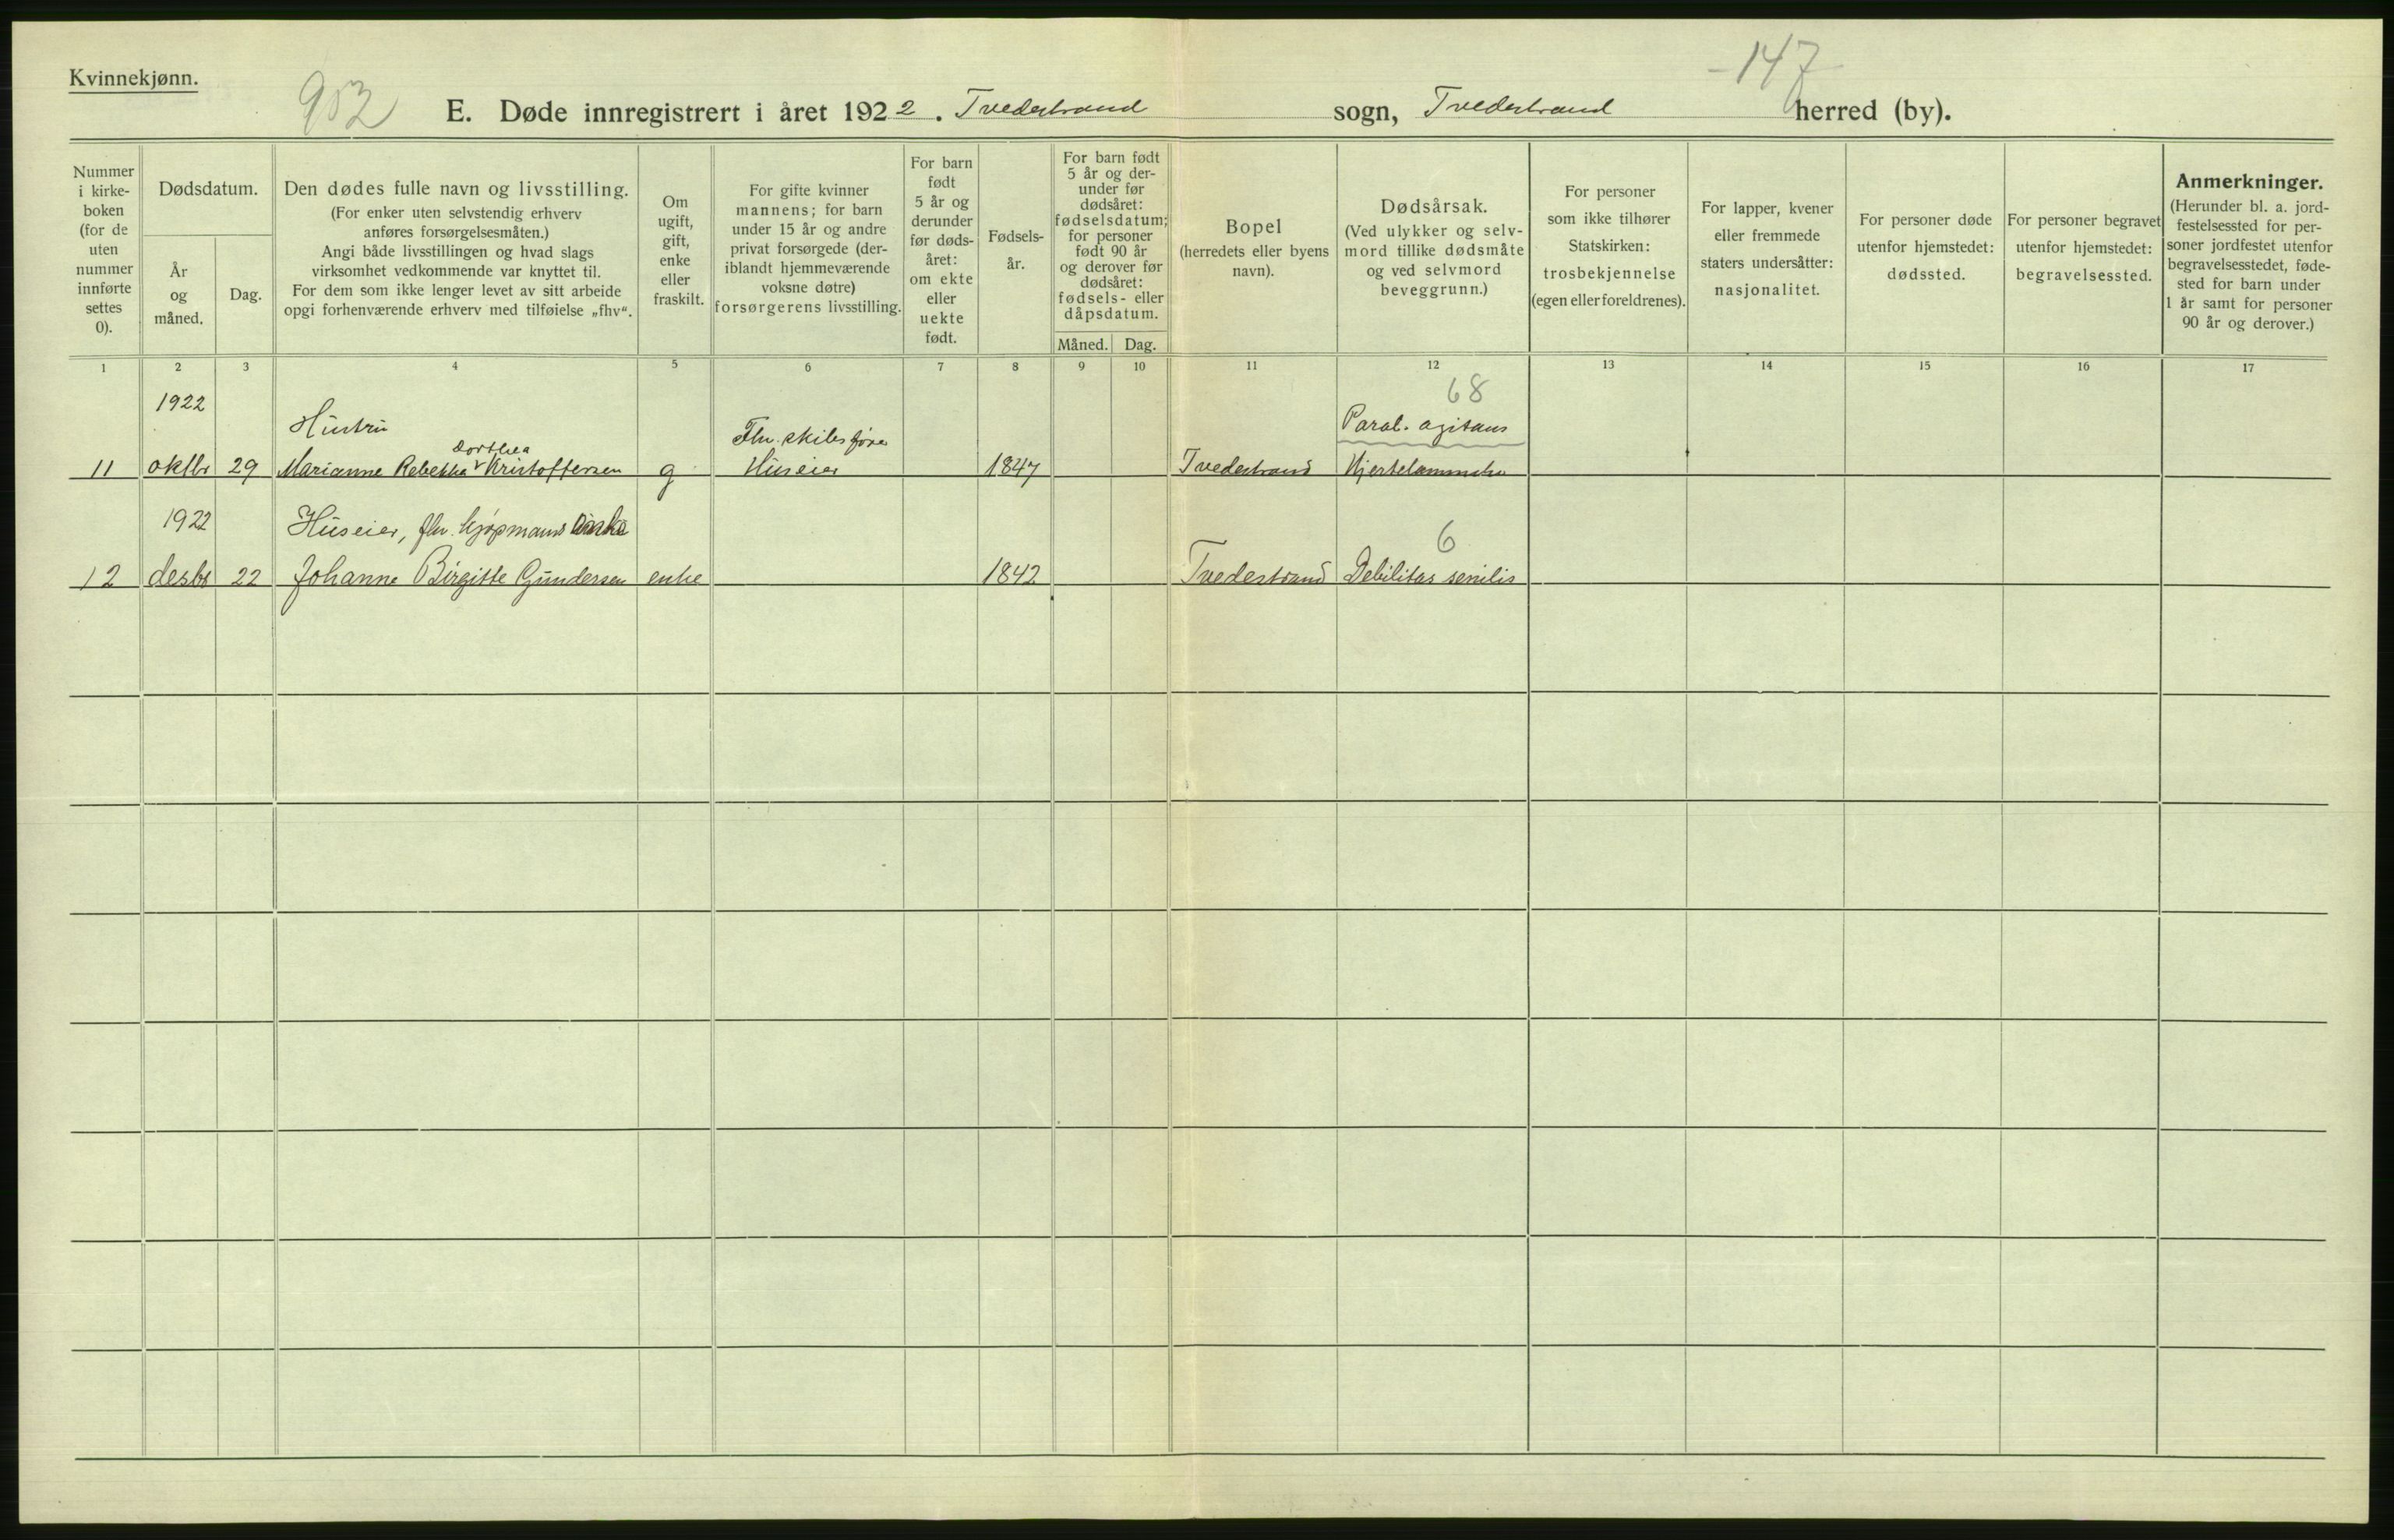 Kvinnekjønn.
953
-147
E. Døde innregistrert i året 1922. Tvedestrand sogn, Tvedestrand herred (by).
Nummer
i kirke-
boken
(for de
uten
nummer
innførte
settes
0).
Dødsdatum.
År
og
måned.
Dag.
Den dødes fulle navn og livsstilling.
(For enker uten selvstendig erhverv
anføres forsørgelsesmåten.)
Angi både livsstillingen og hvad slags
virksomhet vedkommende var knyttet til.
For dem som ikke lenger levet av sitt arbeide
opgi forhenværende erhverv med tilføielse „fhv“.
Om
ugift,
gift,
enke
eller
fraskilt.
For gifte kvinner
mannens; for barn
under 15 år og andre
privat forsørgede (der-
iblandt hjemmeværende
voksne døtre)
forsørgerens livsstilling.
For barn
født
5 år og
derunder
før døds-
året:
om ekte
eller
uekte
født.
Fødsels-
år.
For barn født
5 år og der-
under før
dødsåret:
fødselsdatum;
for personer
født 90 år
og derover før
dødsåret:
fødsels- eller
dåpsdatum.
Måned. Dag.
Bopel
(herredets eller byens
navn).
Dødsårsak.
(Ved ulykker og selv-
mord tillike dødsmåte
og ved selvmord
beveggrunn.)
For personer
som ikke tilhører
Statskirken:
trosbekjennelse
(egen eller foreldrenes).
For lapper, kvener
eller fremmede
staters undersåtter:
nasjonalitet.
For personer døde
utenfor hjemstedet:
dødssted.
For personer begravet
utenfor hjemstedet:
begravelsessted.
Anmerkninger.
(Herunder bl. a. jord-
festelsessted for per-
soner jordfestet utenfor
begravelsesstedet, føde-
sted for barn under
1 år samt for personer
90 år og derover.)
1 2 3 4 5 6 7 8 9 10 11 12 13 14 15 16 17
1922 68
Hustru Fhv. skibsfører Paral. agitans
Dorthea
11 oktbr 29 Marianne Rebekka Kristoffersen g Huseier 1847 Tvedestrand
1922 Huseier, fhv. kjøpmanns enke 6
12 desbr 22 Johanne Birgitte Gundersen enke 1842 Tvedestrand Debilitas senilis